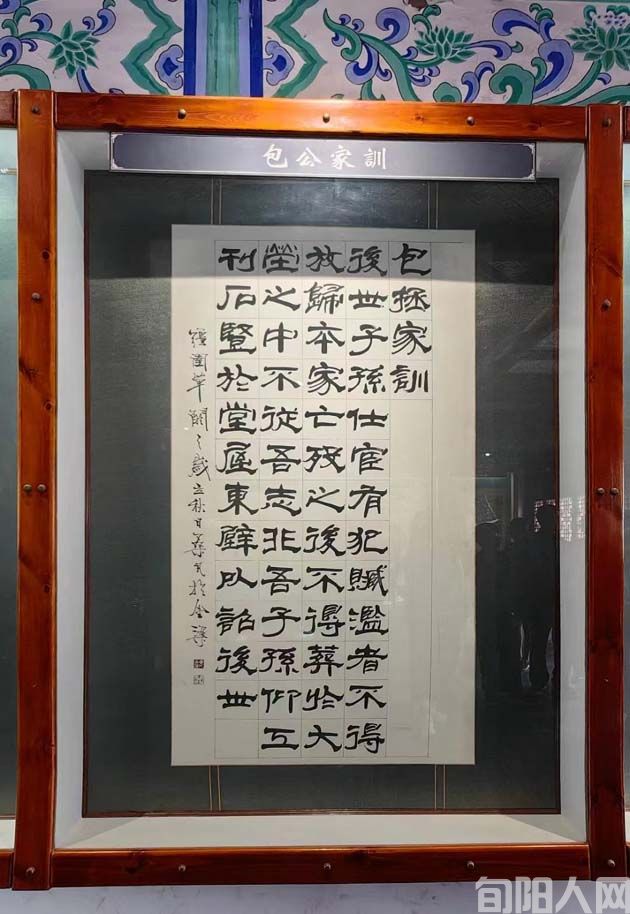 包公家訓
包拯家訓
後世子孫仕宦有犯贓濫者不得
放歸本家亡歿之後不得葬於大
塋之中不從吾志非吾子孫仰工
刊石豎於堂屋東壁以詔後世
歲立秋日
旬阳人网